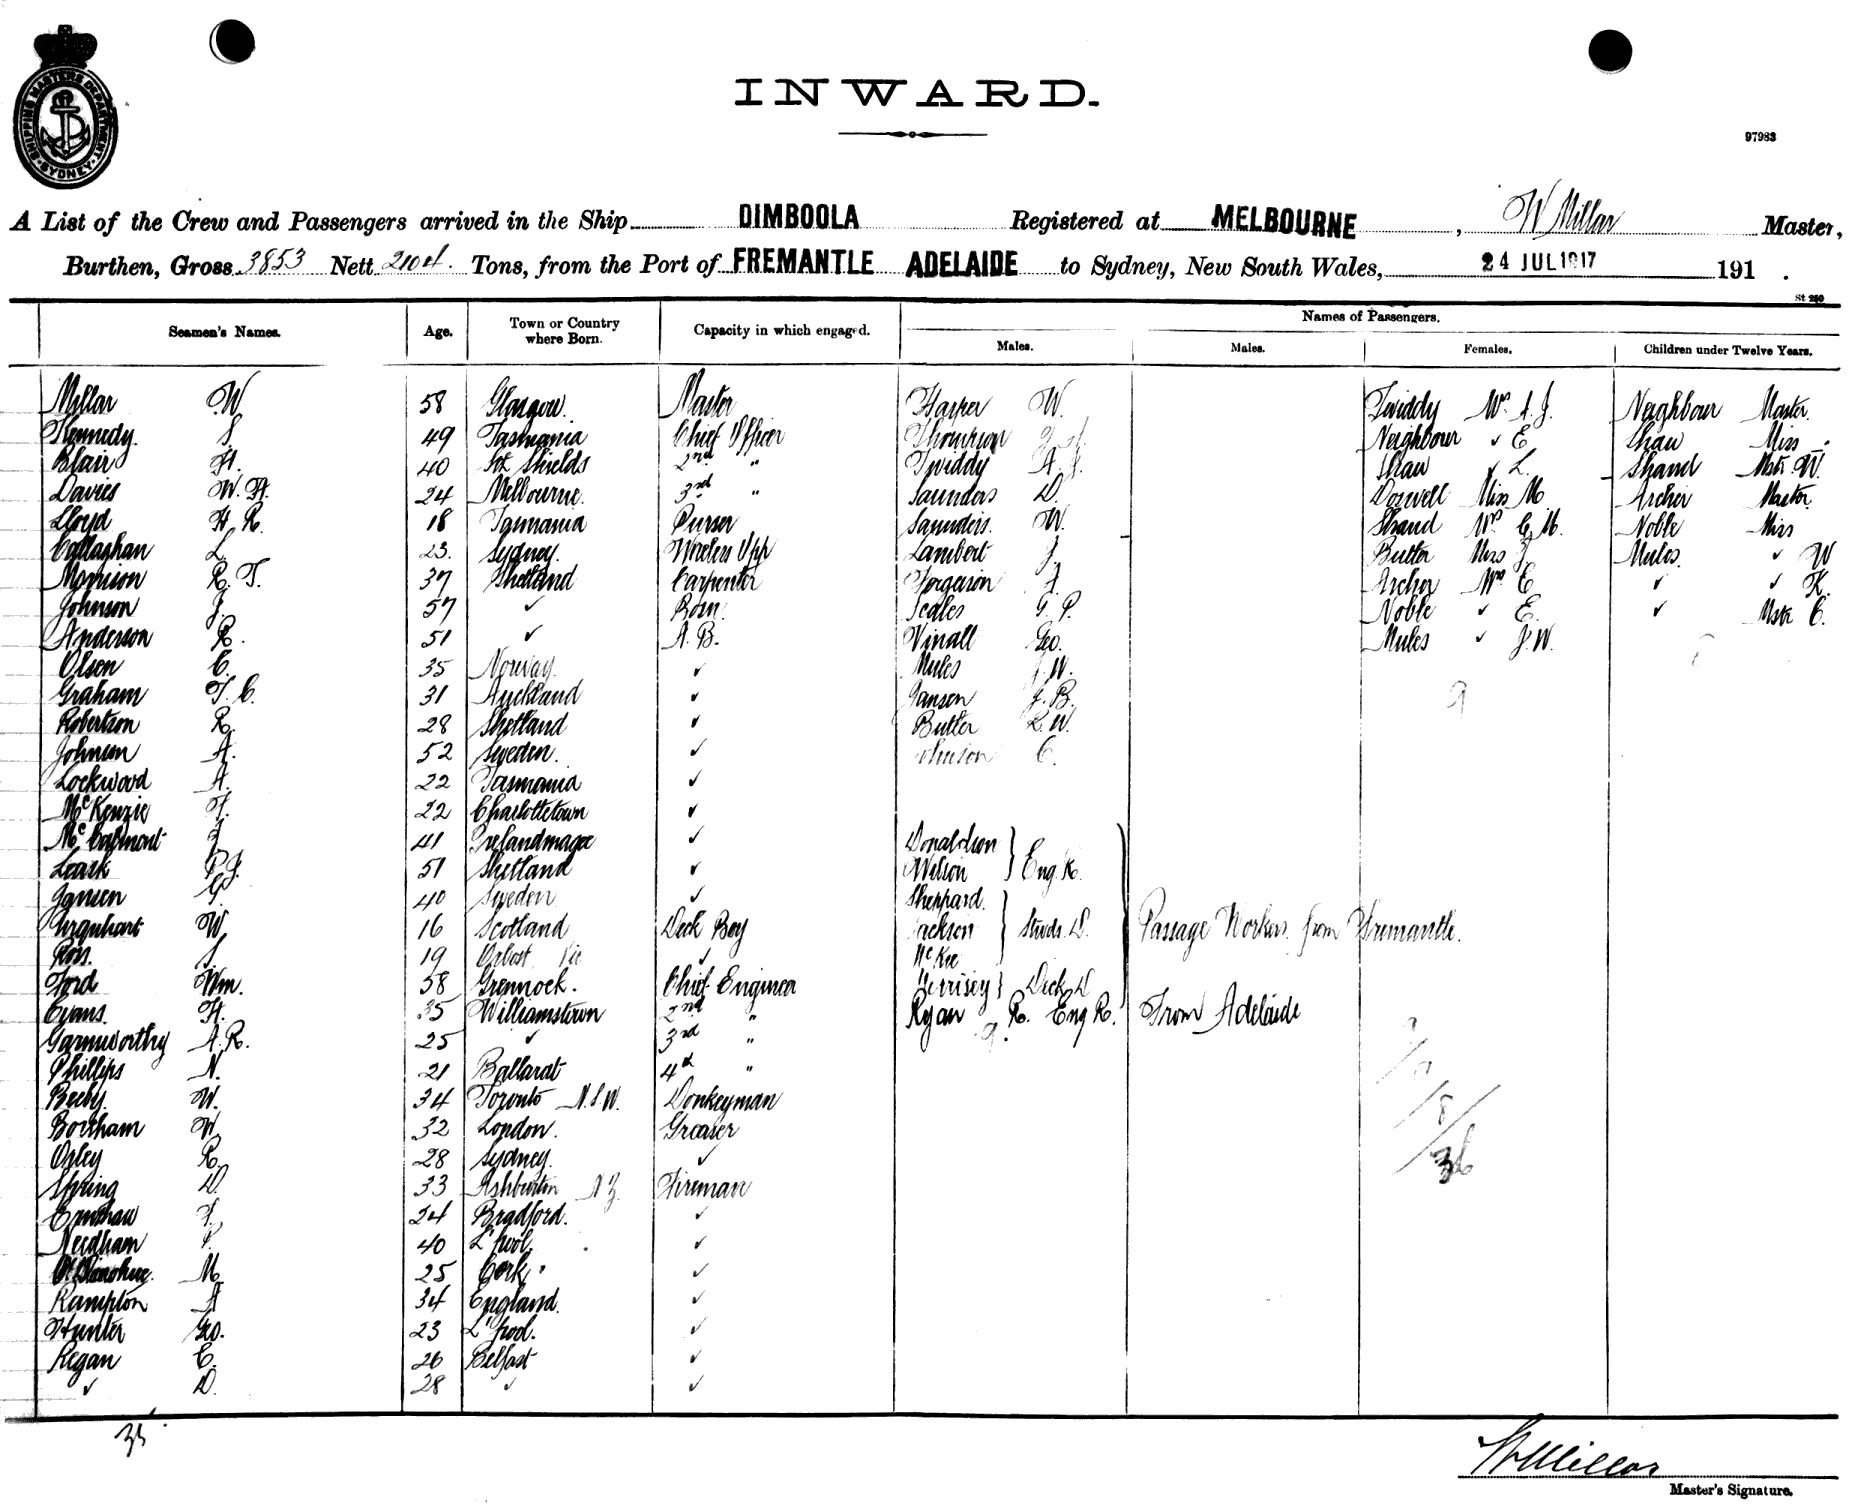 SHIPPING MASTERS DEPARTMENT
SYDNEY
INWARD.
97983
A List of the Crew and Passengers arrived in the Ship DIMBOOLA Registered at MELBOURNE, W Millar Master,
Burthen, Gross 3853 Nett Tons, from the Port of FREMANTLE ADELAIDE to Sydney, New South Wales, 24 JUL 1917 191 .
St 250
Seamen's Names. Age. Town or Country where Born. Capacity in which engaged. Names of Passengers.
Males. Males. Females. Children under Twelve Years.
Millar W 58 Glasgow. Master Harper W. Twiddy Mrs A.J. Neighbour Master
Kennedy. 49 Tasmania Chief Officer Thompson Neighbour ✓ E Shaw Miss
Blair H. 40 Sth Shields 2nd " Twiddy A.J. Shaw ✓ L. Shand Mstr W.
Davies W.H. 24 Melbourne. 3rd " Saunders D. Doswell Miss M Archer Master
Lloyd H.R. 18 Tasmania Purser Saunders. W. Shand Mrs C.M. Noble Miss
Callaghan L. 23. Sydney. Wireless Opp Lambert J. Butler Miss J Mules. ✓ W
Morrison R.T. 37 Shetland Carpenter Ferguson Archer Mrs E ✓ ✓ K.
Johnson J. 57 ✓ Bosn. Scales G.P. Noble ✓ E. ✓ Mstr C.
Anderson R. 51 ✓ A.B. Vinall Geo. Mules ✓ J.W.
Olsen C. 35 Norway. ✓ Mules J.W.
Graham T.C. 31 Auckland ✓ Jansen J.B. 9
Robertson R. 28 Shetland ✓ Butler L.W.
Johnson A. 52 Sweden. ✓ Johnson C.
Lockwood A. 22 Tasmania ✓
McKenzie 22 Charlottetown ✓
McCalmont 41 Irelandmagee ✓ Donaldson
Leask P.J. 51 Shetland ✓ Wilson } Eng. R.
Jansen G. 40 Sweden ✓ Sheppard.
Urquhart W. 16 Scotland Deck Boy Jackson } Stwds. D. Passage Workers from Fremantle.
Ross. 19 Orbost Vic ✓ McKee
Ford Wm. 58 Greenock. Chief Engineer } Deck D
Evans. H. 35 Williamstown 2nd " Ryan R. Eng R. From Adelaide
Garnworthy A.R. 25 ✓ 3rd " 9.
Phillips N. 21 Ballarat 4th "
Beeby. W. 34 Toronto N.S.W. Donkeyman
Boreham W. 32 London. Greaser 8
Oxley R. 28 Sydney. ✓
Spring D. 33 Ashburton N.Z. Fireman
Earnshaw 24 Bradford. ✓
Needham P. 40 L'pool. ✓
O'Donohue. M. 25 Cork ✓
Rampton A 34 England. ✓
Hunter Geo. 23 L'pool. ✓
Regan C. 26 Belfast ✓
✓ D. 28 ✓ ✓
W Millar
Master's Signature.